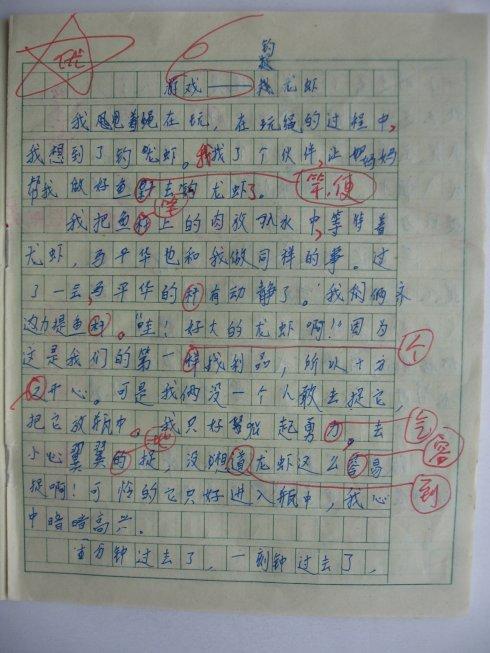 游戏——钓龙虾
我甩着绳在玩，在玩绳的过程中，
我想到了钓龙虾。我找了个伙伴，让妈妈
帮我做好鱼去钓龙虾了。竿，便
竿
我把鱼上的肉放到水中，等待着
龙虾，马平华也和我做同样的事。过
了一会，马平华的有动静了。我们俩永
边力提鱼。"哇！好大的龙虾啊！"因为
这是我们的第一样战利品，所以十方
开心。可是我俩没一个人敢去捉它，
个
把它放瓶中。我只好鼓起勇力。去
气
地
小心翼翼的捉，没想道龙虾这么容易
容
捉啊！可怜的它只好进入瓶中，我心
到
中暗暗高兴。
分钟过去了，一刻钟过去了，